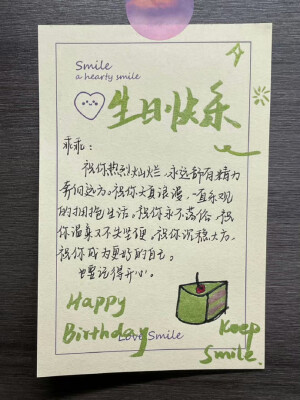 Smile
a hearty smile
生日快乐
乖乖：
祝你热烈灿烂，永远都有精力
奔赴远方。祝你天真浪漫，一直乐观
的拥抱生活。祝你永不落俗，祝
你温柔又不失坚硬。祝你沉稳大方，
祝你成为更好的自己。
也要记得开心。
Happy
Birthday
Love Smile
Keep
Smile